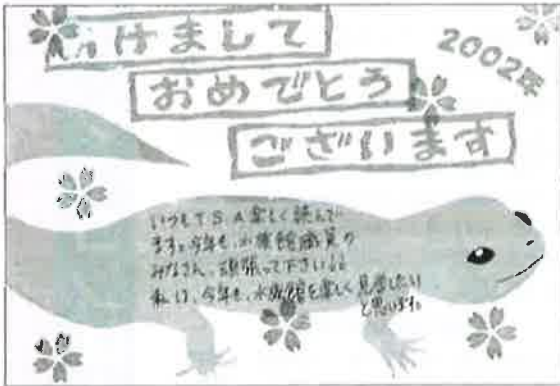 あけまして
おめでとう
ございます
2002年
いつもTSA楽しく読んで
ます。今年も、水族館職員の
みなさん、頑張って下さい。
私は、今年も、水族館を楽しく見学したい
と思います。